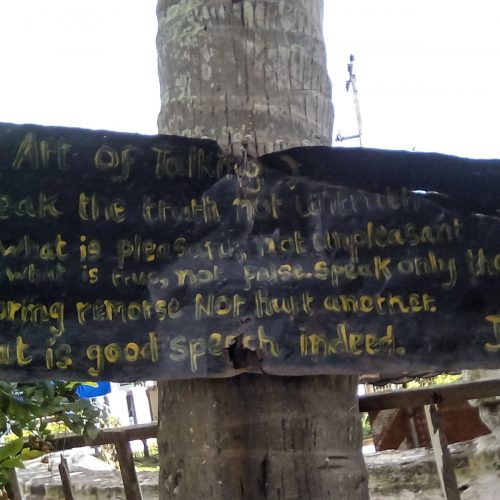 Art of Talking
eak the truth not untruth
what is pleasant, not unpleasant
what is true, not false. speak only tha
oring remorse NOT hurt another.
at is good speech indeed.